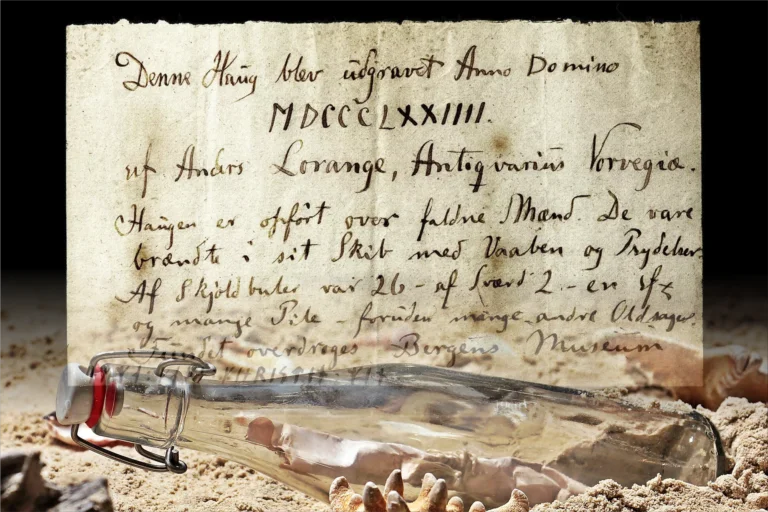 Denne Haug blev udgravet Anno Domino
MDCCCLXXIIII.
af Anders Lorange, Antiqvarius Norvegiæ.
Haugen er opført over faldne Mænd. De vare
brændte i sit Skib med Vaaben og Prydelser.
Af Skjoldbuler var 26 - af Sværd 2. - en
og mange Pile - foruden mange andre Oldsager.
Fundet overdroges Bergens Museum